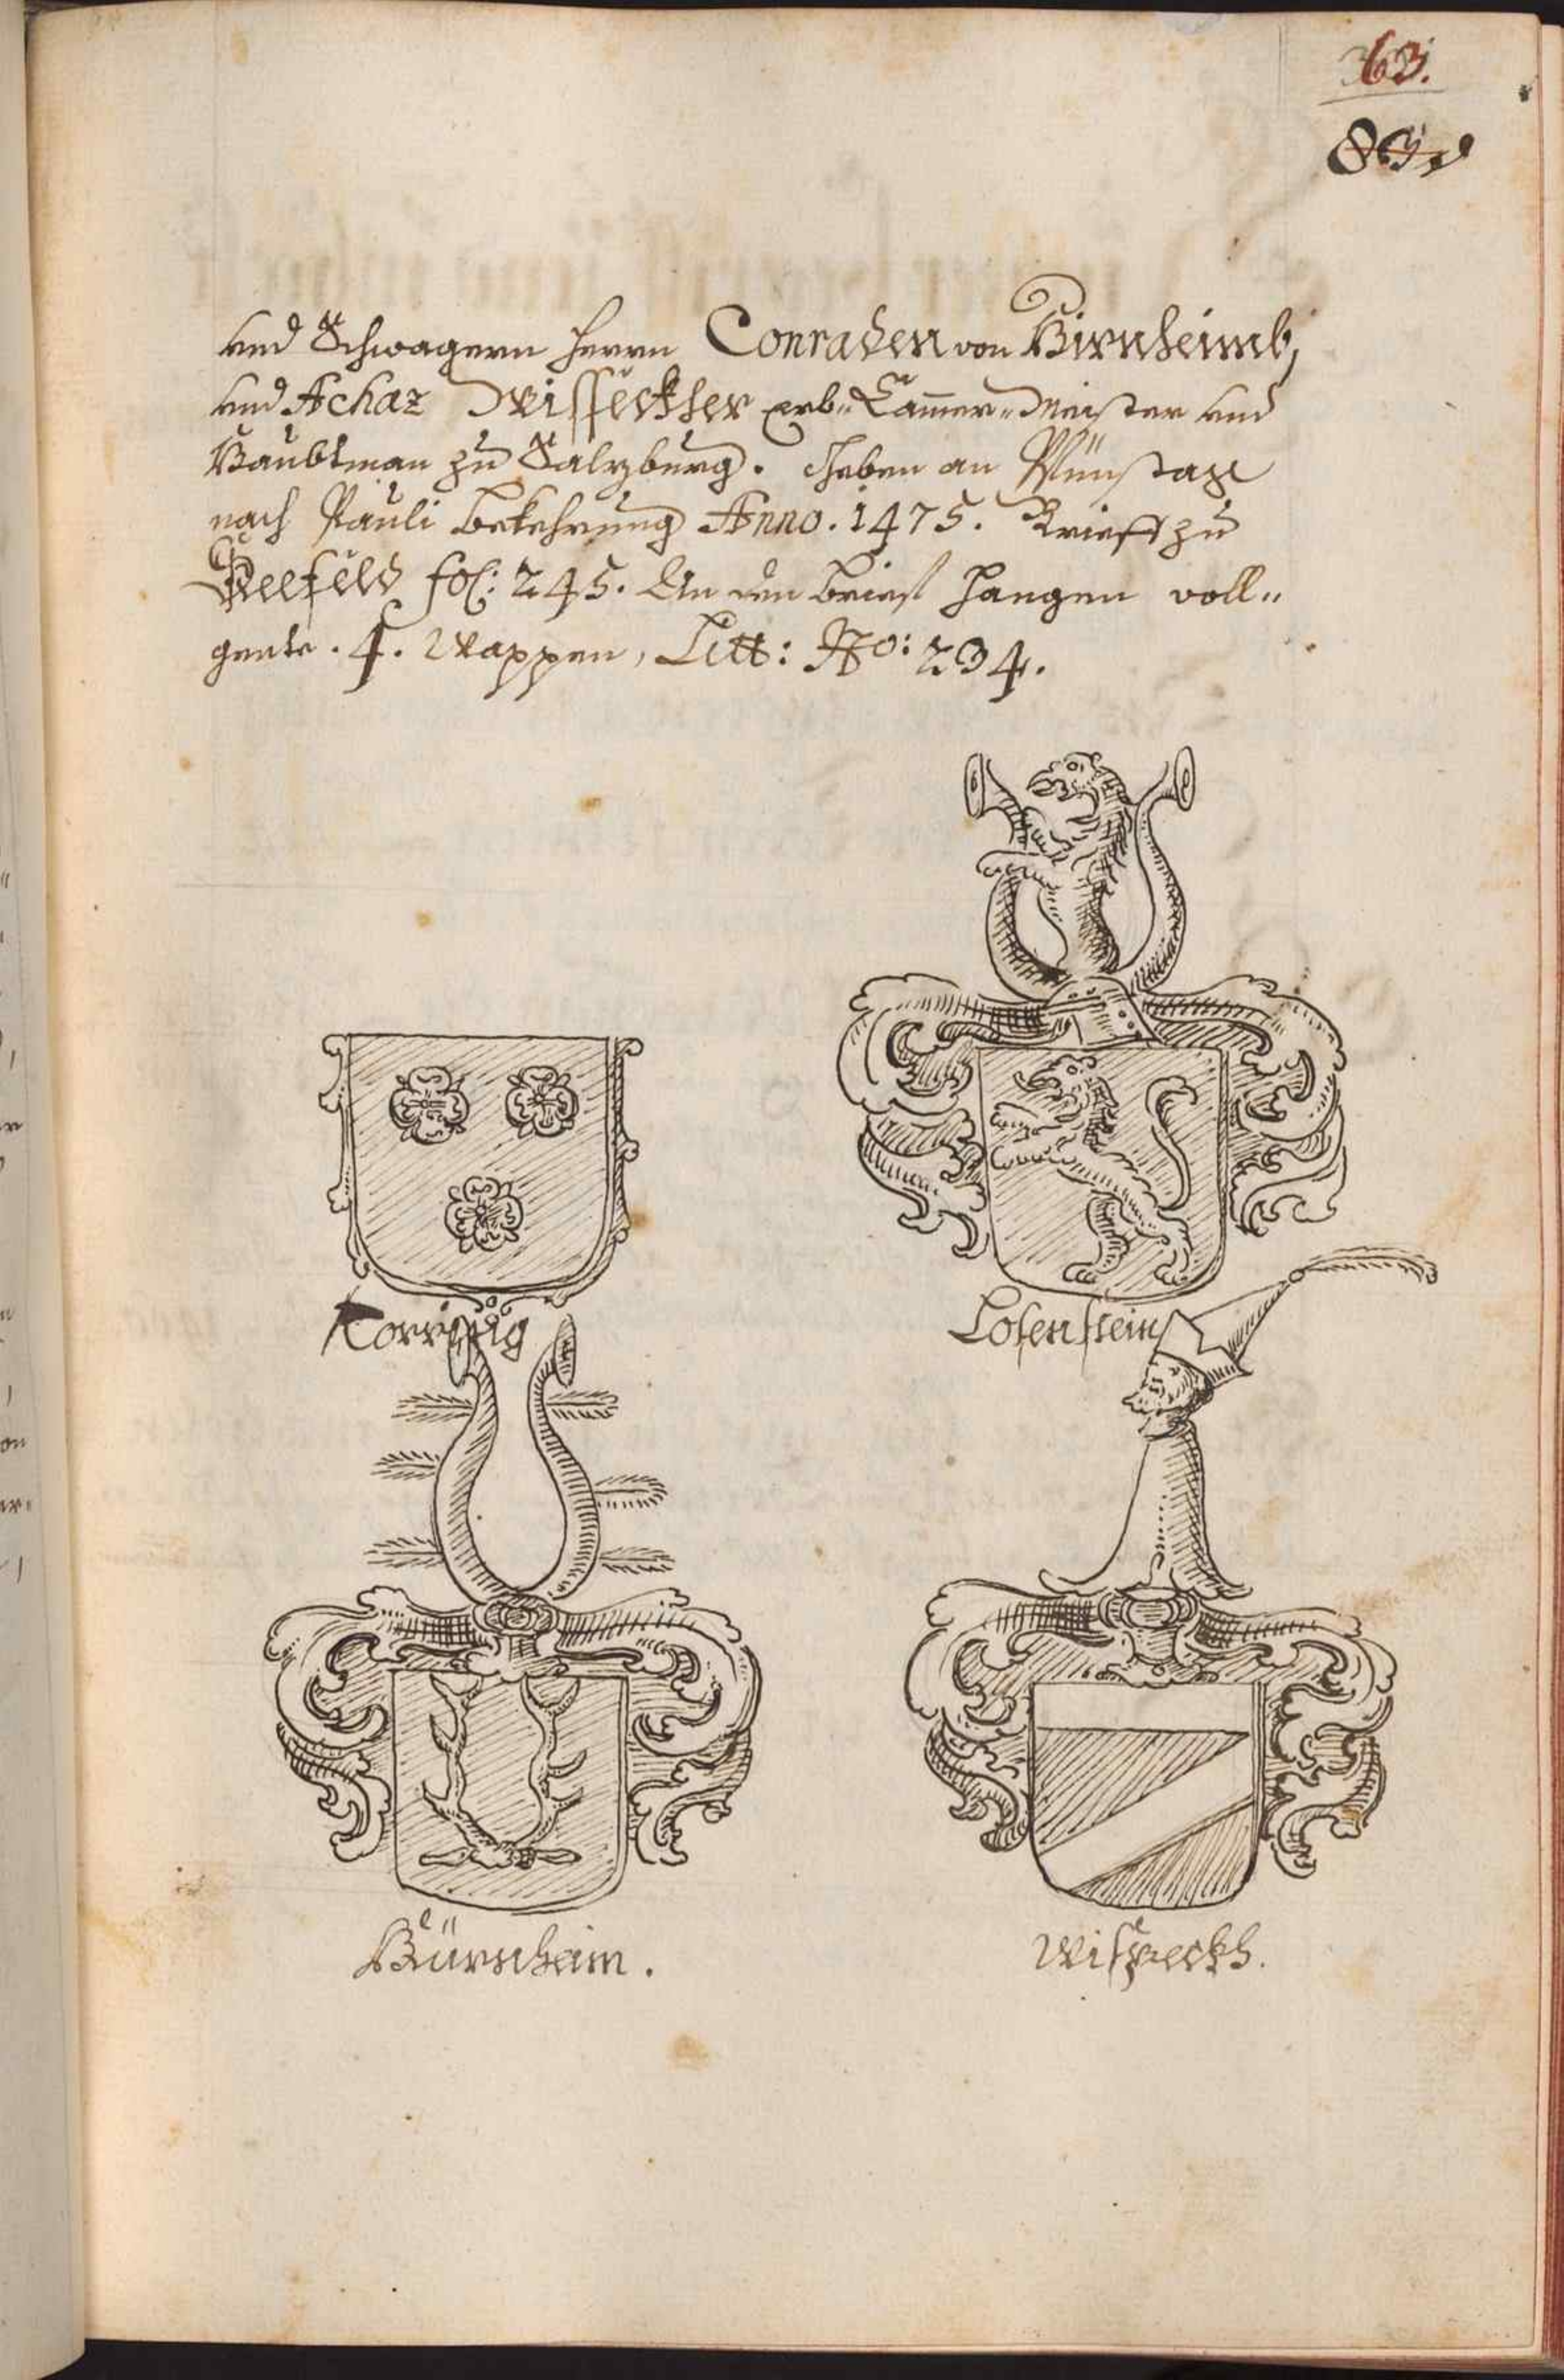 63.
83
und Schwagern Herrn Conraden von Hirnheimb,
und Achaz Wispeckher erb-Cammer-Meister und
Haubtman zu Salzburg. Geben an
nach Pauli bekehrung Anno. 1475. Brieff zu
Seefeld fol: 245. An den brieff hangen voll-
gente .4. Wappen, Litt: No: 234.
Losenstein
Hürnheim.
Wispeckh.